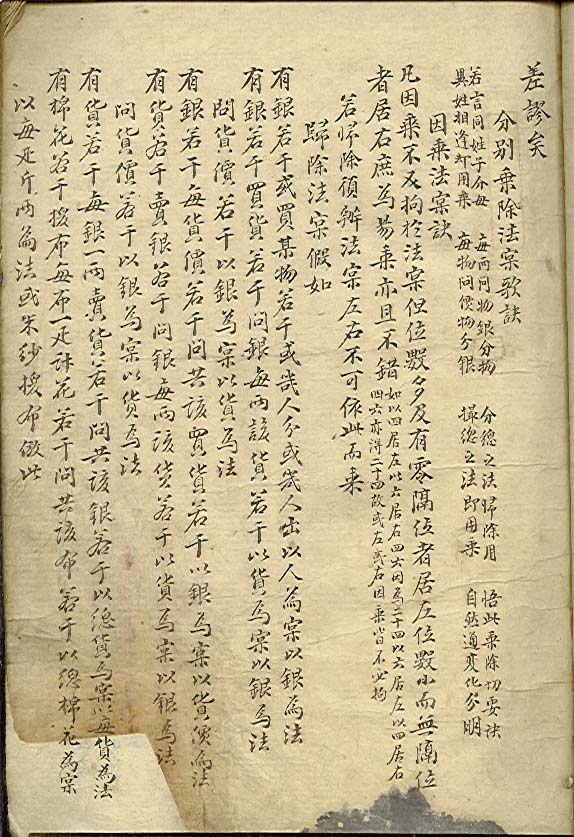 差謬矣
分别乘除法実歌訣
若言同姓子分母 每兩問物銀分物 分總之法歸除用 悟此乘除切要訣
異姓相逢却用乘 每物問價物分銀 撮總之法即用乘 自然通变化分明
因乘法実訣
凡因乘不及拘於法実但位數多及有零隔位者居左位數少而無隔位
者居右庶為易乘亦且不錯如以四居左以六居右四六因為二十四以六居左以四居右
四六亦得二十四故或左或右因乘皆不必拘
若帰除須辨法実左右不可依此而乘
歸除法実假如
有銀若干或買某物若干或幾人分或幾人出以人為実以銀為法
有銀若干買貨若干問銀每兩該貨若干以貨為実以銀為法
問貨價若干以銀為実以貨為法
有銀若干每貨價若干問共該買貨若干以銀為実以貨價為法
有貨若干賣銀若干問銀每兩該貨若干以貨為実以銀為法
問貨價若干以銀為実以貨為法
有貨若干每銀一兩賣貨若干問共該銀若干以總貨為実以每貨為法
有棉花若干換布每布一疋計花若干問共該布若干以總棉花為実
以每疋斤兩為法或朱紗換布倣此